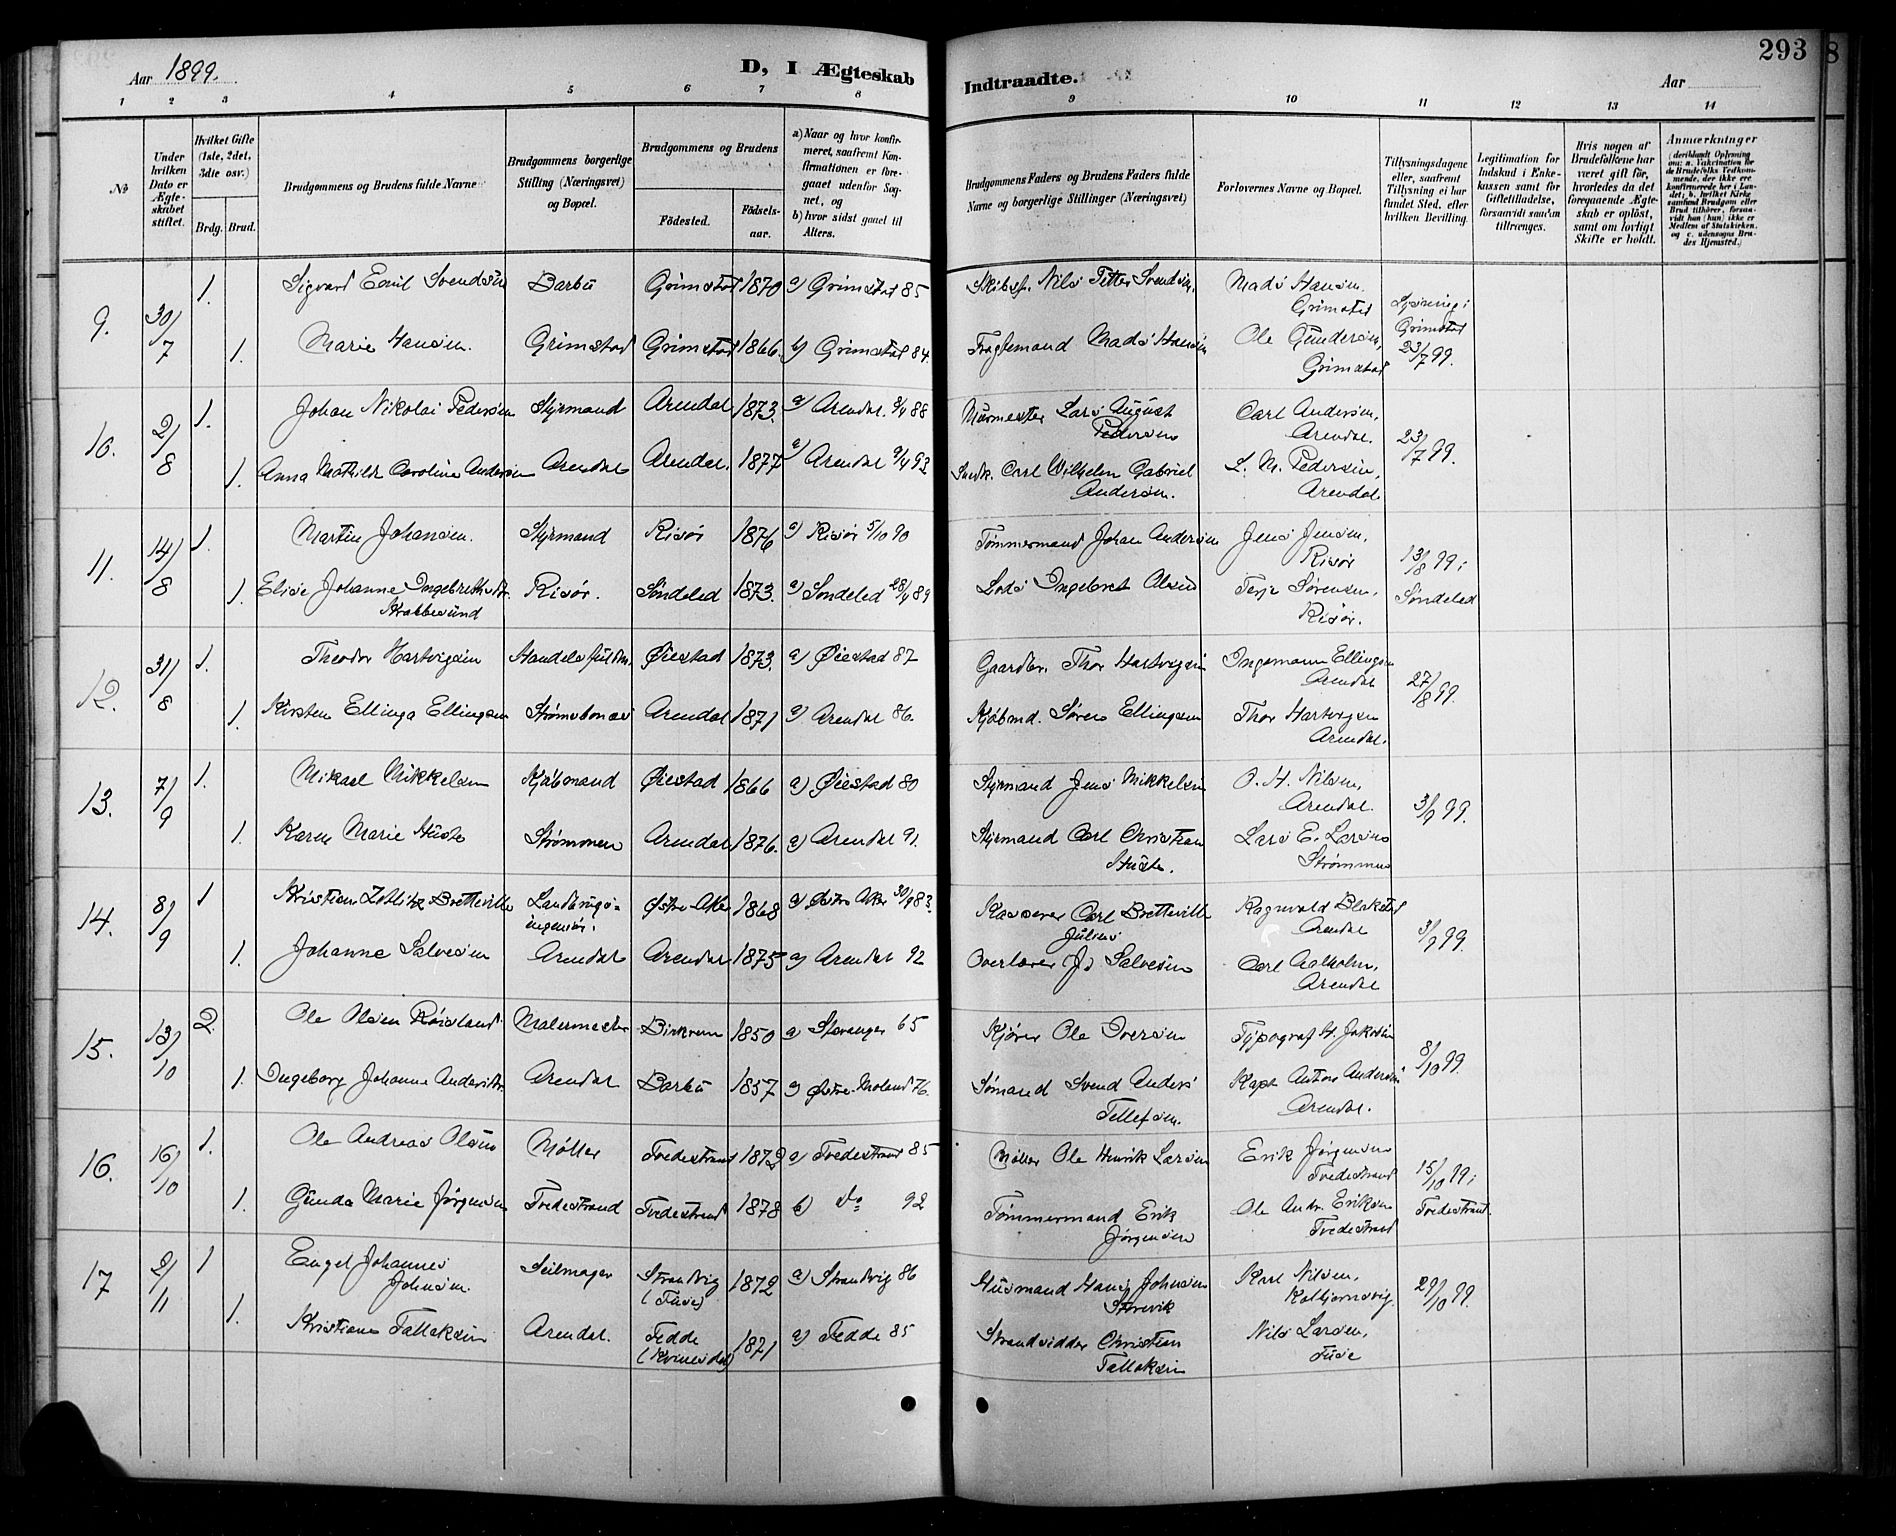 293
Aar 1899.
D, I Ægteskab Indtraadte.
Aar
1 2 3 4 5 6 7 8 9 10 11 12 13 14
No
Under hvilken Dato er Ægteskabet stiftet.
Hvilket Gifte (1ste, 2det, 3die osv.)
Brdg. Brud.
Brudgommens og Brudens fulde Navne
Brudgommens borgerlige Stilling (Næringsvei) og Bopæl.
Brudgommens og Brudens
Fødested.
Fødselsaar.
a) Naar og hvor konfirmeret, saafremt Konfirmationen er foregaaet udenfor Sognet, og
b) hvor sidst gaaet til Alters.
Brudgommens Faders og Brudens Faders fulde Navne og borgerlige Stillinger (Næringsvei)
Forlovernes Navne og Bopæl.
Tillysningsdagene eller, saafremt Tillysning ei har fundet Sted, efter hvilken Bevilling.
Legitimation for Indskud i Enkekassen samt for Giftetilladelse, forsaavidt saadan tiltrænges.
Hvis nogen af Brudefolkene har været gift før, hvorledes da det foregaaende Ægteskab er opløst, samt om lovligt Skifte er holdt.
Anmærkninger (deriblandt Oplysning om: a. Vakcination for de Brudefolks Vedkommende, der ikke ere konfirmerede her i Landet; b. hvilket Kirkesamfund Brudgom eller Brud tilhører, forsaavidt han (hun) ikke er Medlem af Statskirken, og c. udensogns Brudes Hjemsted.)
9. 30/7 1. Sigvard Emil Svendsen Barbu Grimstad 1870 a) Grimstad 85 Skibsf. Nils Petter Svendsen, Mads Hansen, Grimstad Lysning i Grimstad 23/7 99.
1. Marie Hansen. Grimstad Grimstad 1866. b) Grimstad 84. Fragtemand Mads Hansen Ole Gundersen, Grimstad
10. 2/8 1. Johan Nikolai Pedersen Styrmand Arendal 1873. a) Arendal. 8/4 88 Murmester Lars August Pedersen Carl Andersen, Arendal. 23/7 99.
1. Anna Mathilde Caroline Andersen Arendal Arendal. 1877 a) Arendal 9/4 93 Snedk. Carl Wilhelm Gabriel Andersen. L. A. Pedersen, Arendal
11. 14/8 1. Martin Johansen. Styrmand Risør 1876 a) Risør 5/10 90 Tømmermand Johan Andersen Jens Jensen, Risør 13/8 99 i Søndeled
1. Elise Johanne Ingebrethsdtr. Krabbesund Risør. Søndeled 1873. a) Søndeled 28/4 89 Lods Ingebret Olsen Terje Sørensen, Risør.
12. 31/8 1. Theodor Hartvigsen Handelsfuldm. Øiestad 1873. a) Øiestad 87 Gaardbr. Thor Hartvigsen Ingemann Ellingsen Arendal 27/8 99.
1. Kirsten Ellinga Ellingsen Strømsbonæs Arendal 1871 a) Arendal 86. Kjøbmd. Søren Ellingsen Thor Hartvigsen Arendal.
13. 7/9 1. Mikael Mikkelsen Kjøbmand Øiestad 1866 a) Øiestad 80 Styrmand Jens Mikkelsen O. H. Nilsen, Arendal. 3/9 99.
1. Karen Marie Huste Strømmen Arendal 1876. a) Arendal 91. Styrmand Carl Christian Huste. Lars E. Larsens Strømmen
14. 8/9 1 Kristian Zetlitz Bretteville Landbrugsingeniør. Østre Aker 1868 a) Østre Aker 30/9 83. Kasserer Carl Bretteville Julius Ragnvald Blakstad Arendal 3/9 99
1. Johanne Salvesen Arendal Arendal 1875 a) Arendal 92 Overlærer Js Salvesen Carl Aalholm, Arendal
15. 13/10 2. Ole Olsen Røisland Malermester Birkrem 1850 a) Stavanger 65 Kjører Ole Iversen Typograf H. Jakobsen 8/10 99.
1. Ingeborg Johanne Andersdtr. Arendal Barbu 1857 a) Østre Moland 76. Sømand Svend Anders Tellefsen. Kapt Anton Andersen Arendal.
16. 16/10 1. Ole Andreas Olsen Møller Tvedestrand 1872 a) Tvedestrand 85 Møller Ole Henrik Larsen Erik Jørgensen Tvedestrand 15/10 99 i Tvedestrand.
1. Gunda Marie Jørgensen Tvedestrand Tvedestrand 1878 b) do 92 Tømmermand Erik Jørgensen Ole Andr. Eriksen Tvedestrand
17 2/11 1 Engel Johannes Johnsen. Seilmager Strandvig (Fuse) 1872 a) Strandvig 86 Husmand Hans Johnsen Storevik Karl Nilsen, Kolbjørnsvig. 29/10 99.
1. Kristiane Tallaksen Arendal. Fedde (Kvinesdal) 1871 a) Fedde 85 Strandsidder Christian Tallaksen Nils Larsen, Fuse